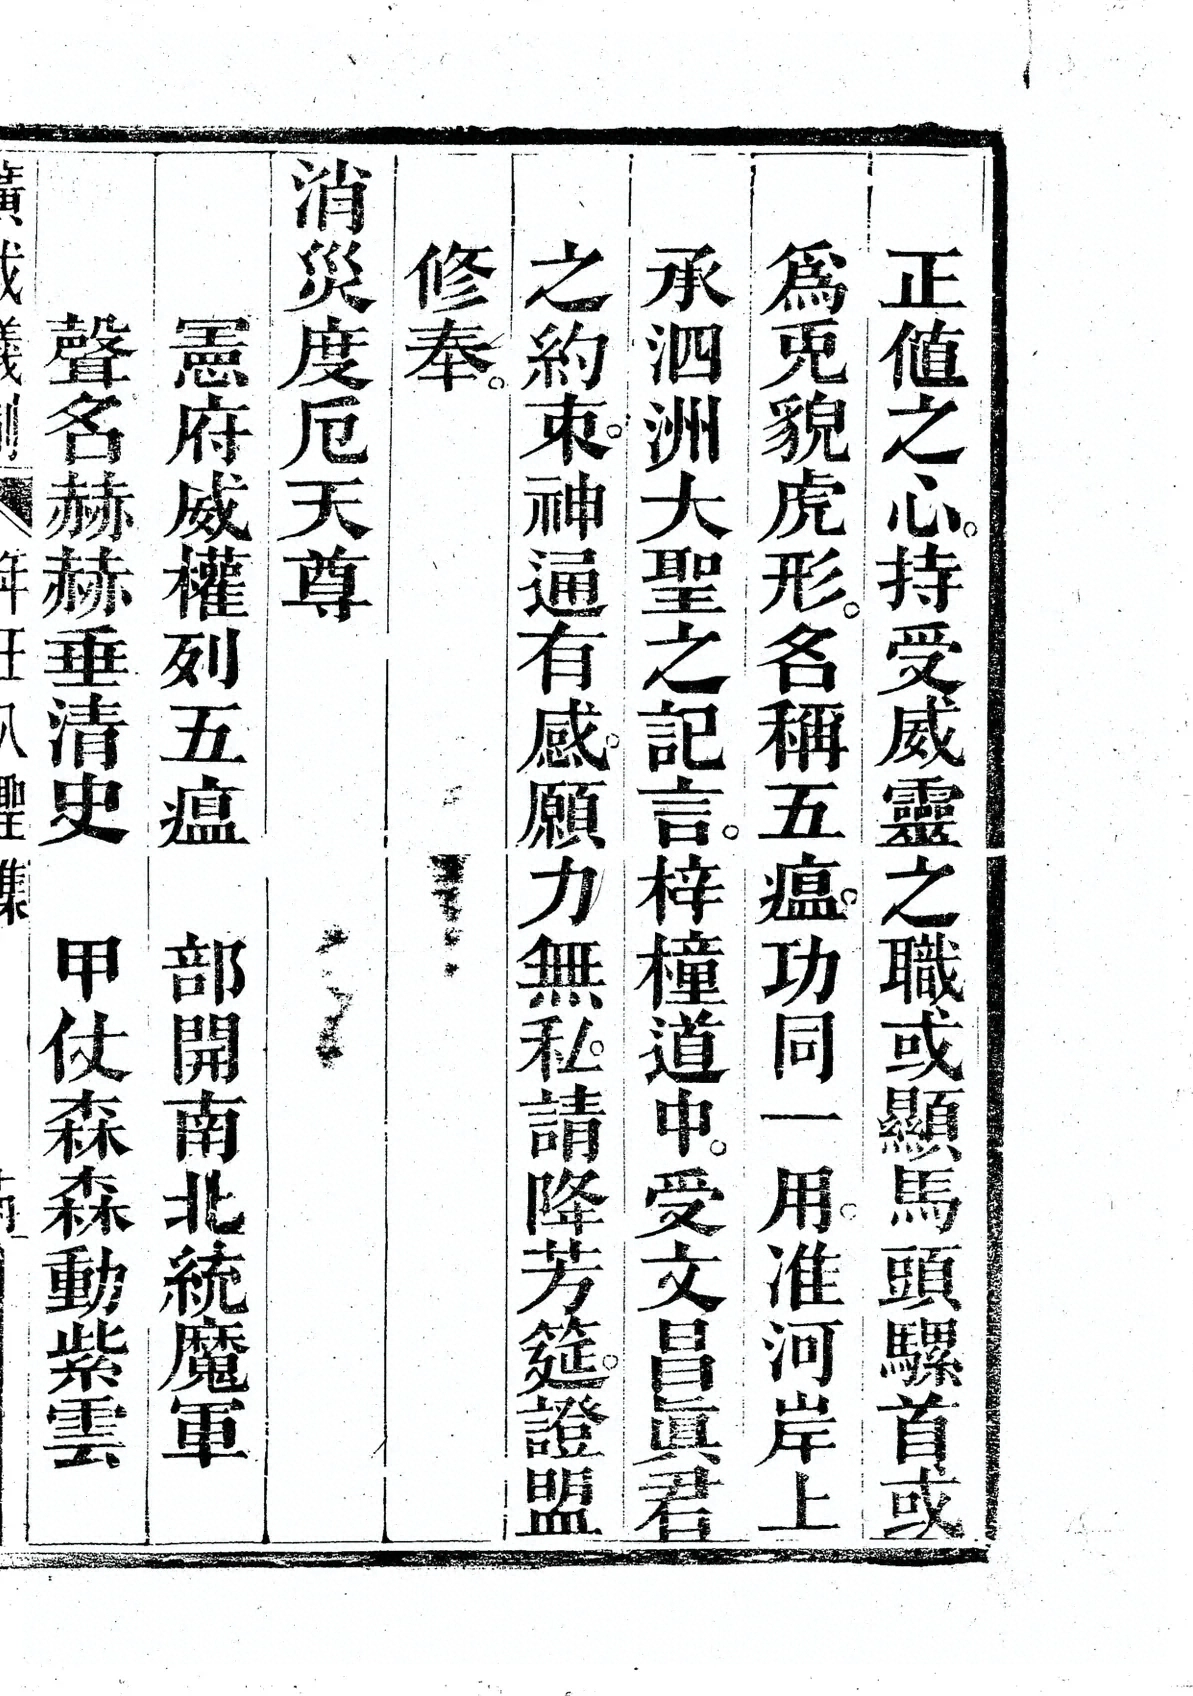 正値之心。持受威靈之職或顯馬頭騾首或
爲兎貌虎形。名稱五瘟。功同一用。淮河岸上
承泗洲大聖之記言。梓橦道中。受文昌眞君
之約束。神通有感。願力無私。請降芳筵。證盟
修奉。
消災度厄天尊
憲府威權列五瘟　部開南北統魔軍
聲名赫赫垂清史　甲仗森森動紫雲